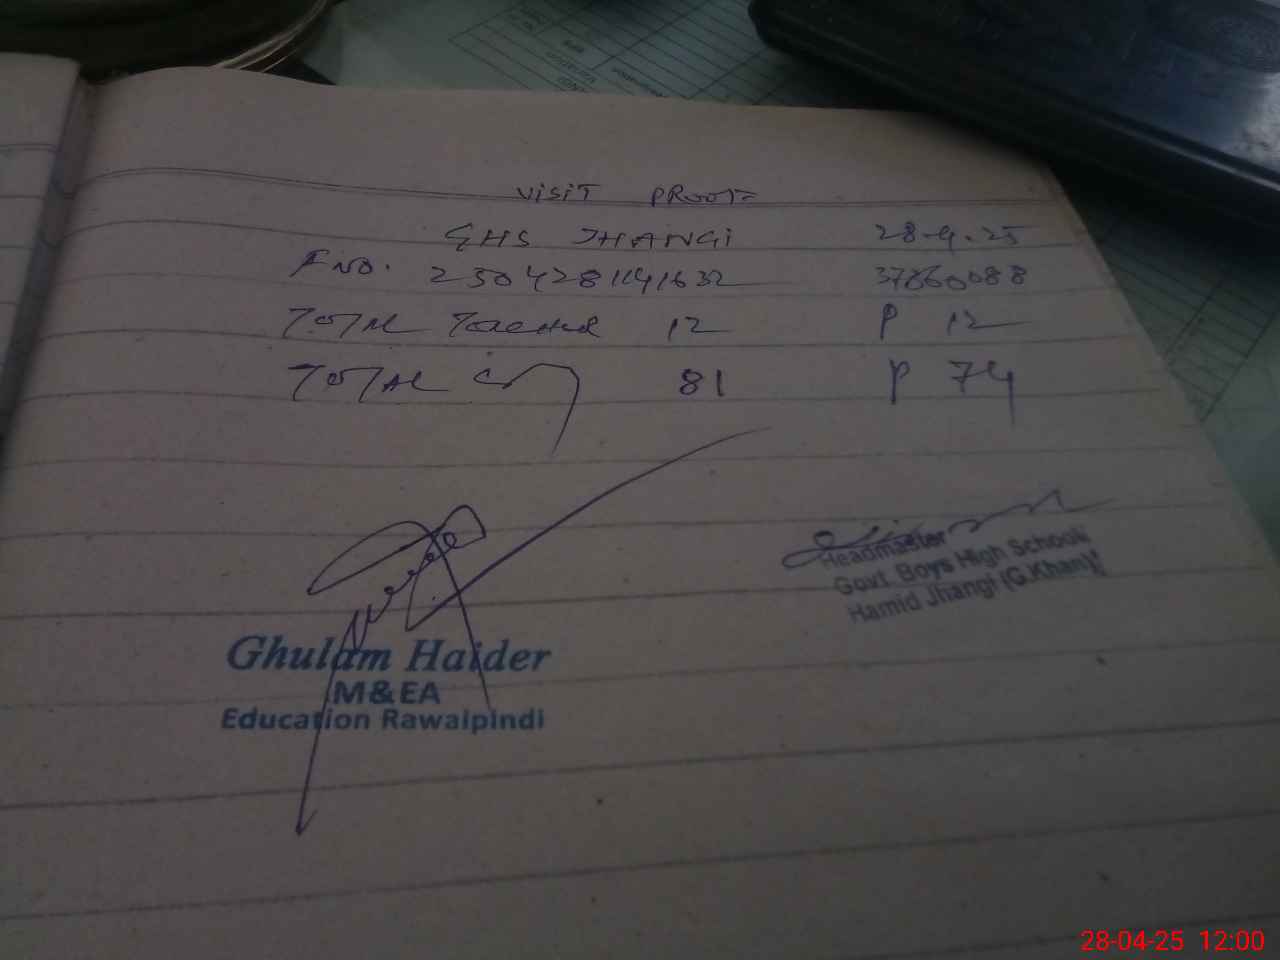 VISIT PROOF
GHS JHANGI 28-4-25
F NO. 2504281141632 37360088
TOTAL Teacher 12 P 12
TOTAL 81 P 74
Headmaster
Govt. Boys High School
Hamid Jhangi (G.Khan)
Ghulam Haider
M&EA
Education Rawalpindi
28-04-25 12:00